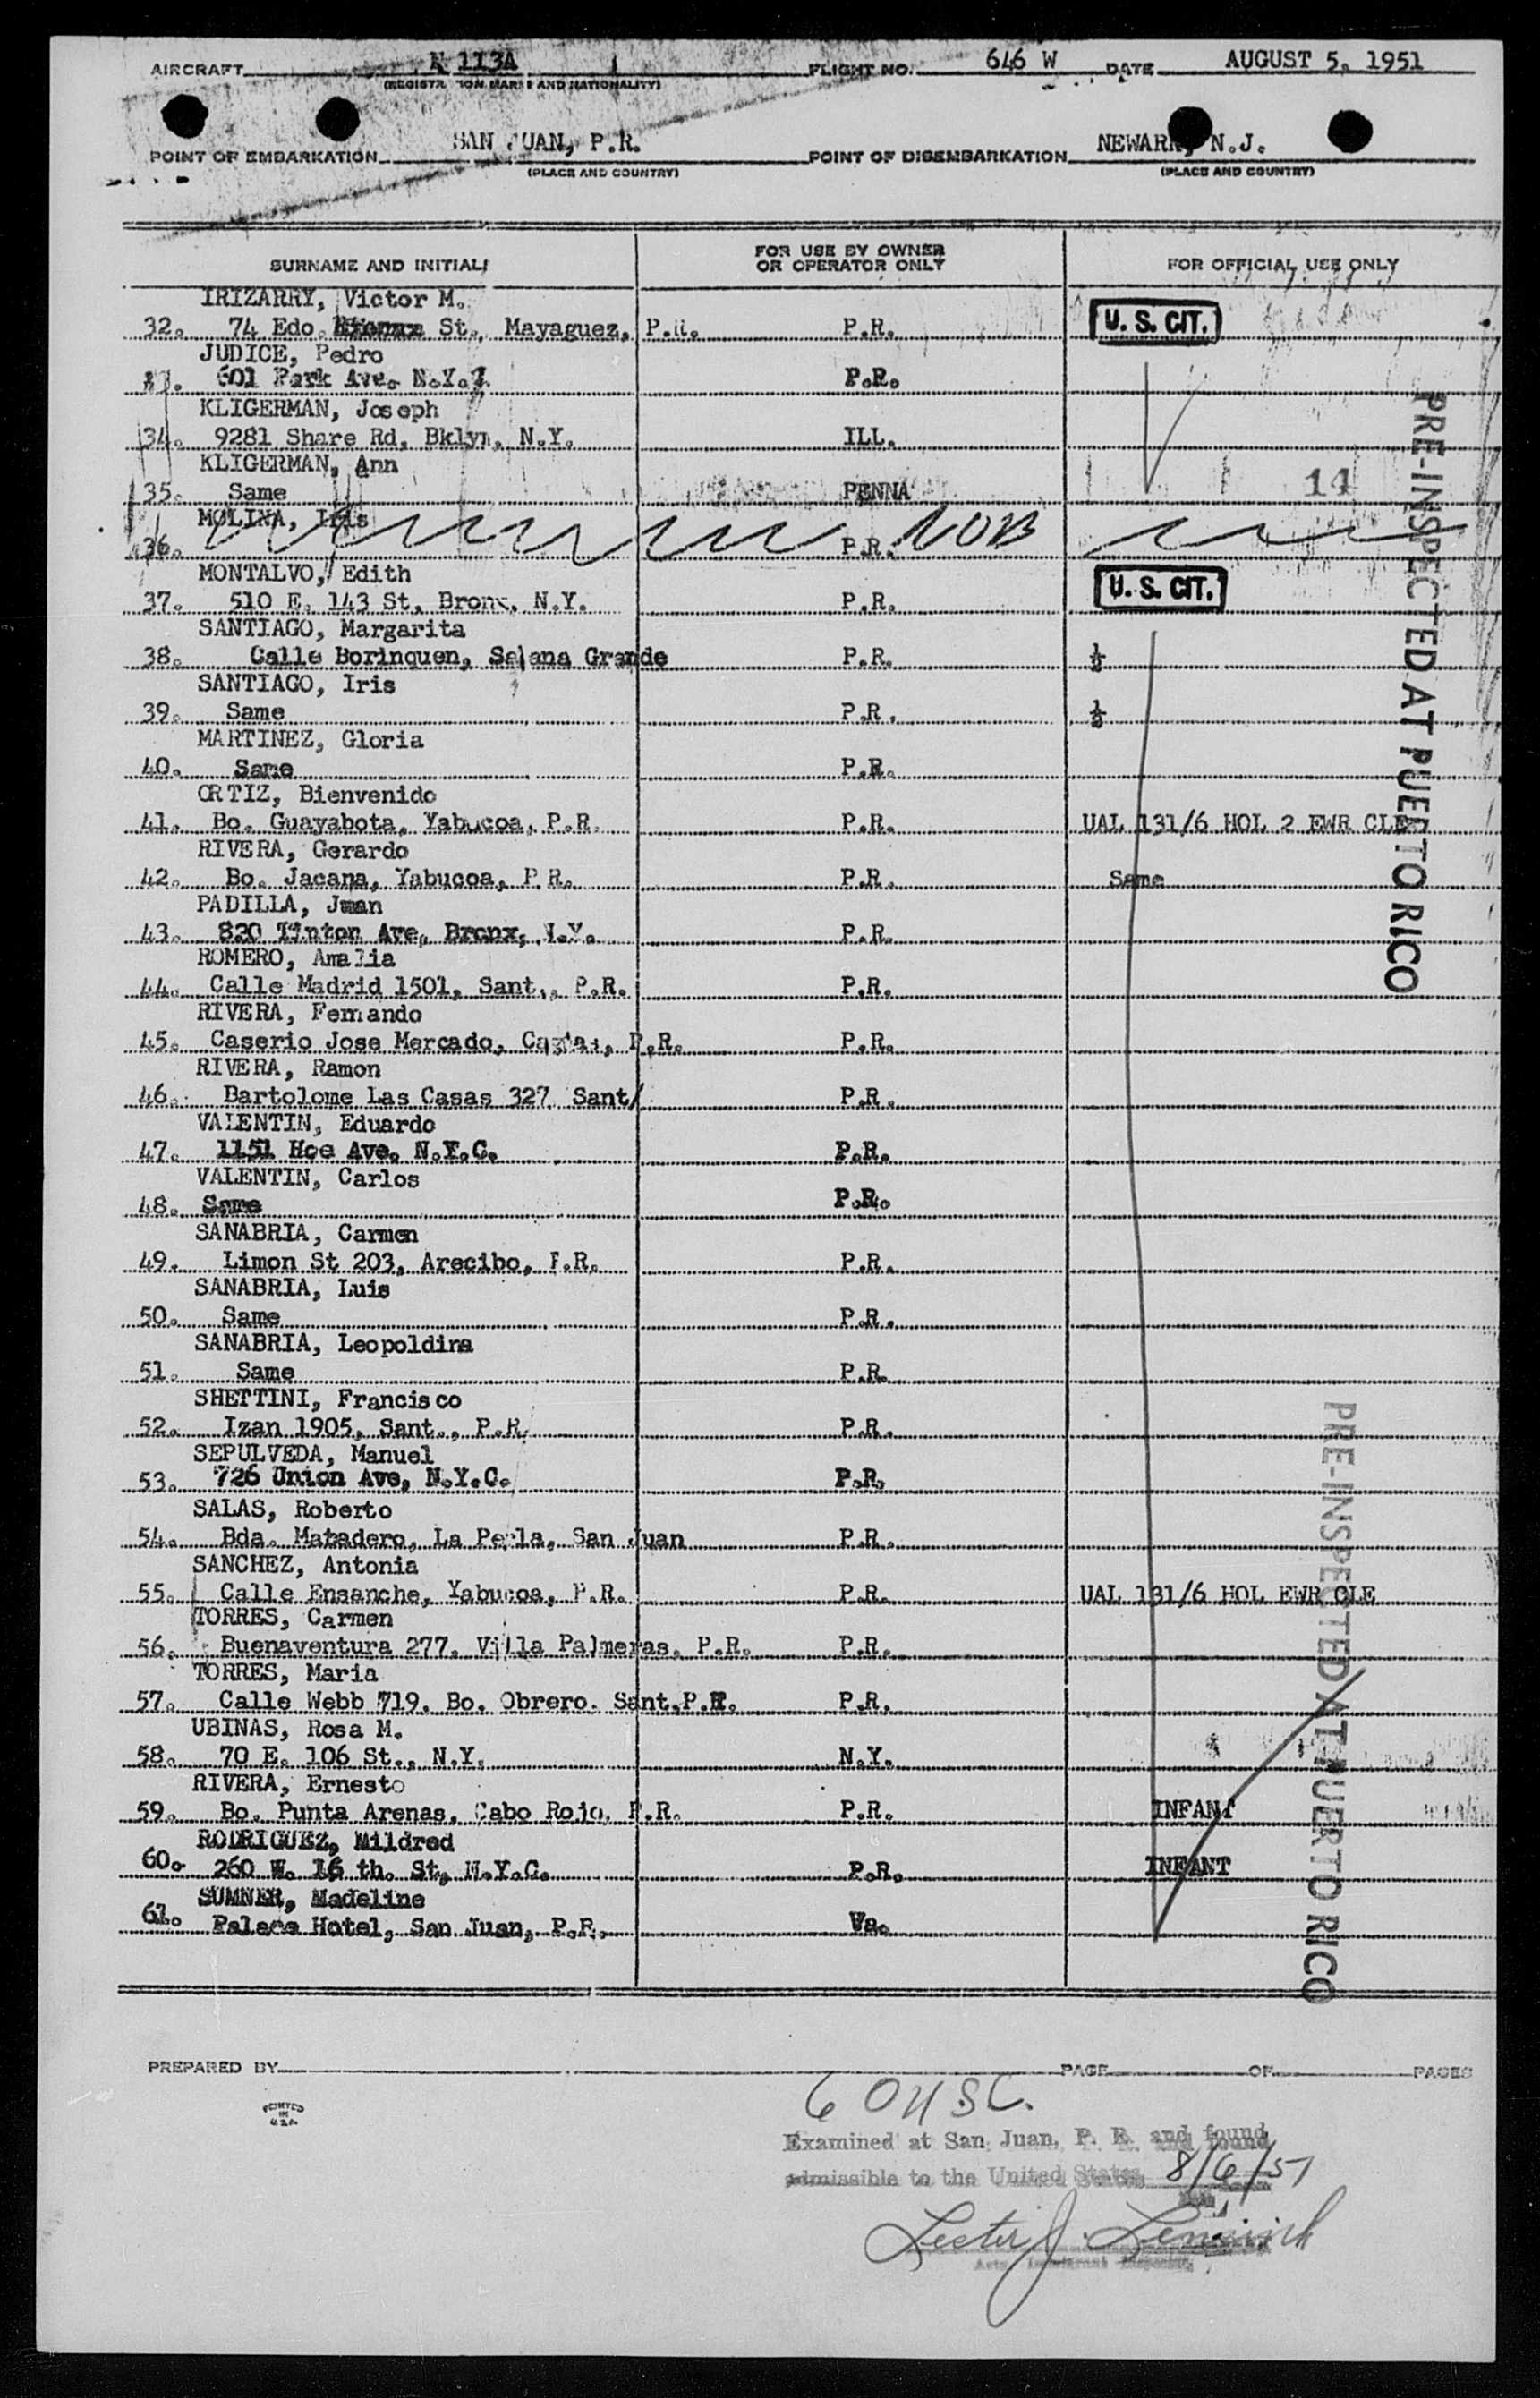 AIRCRAFT N 113A FLIGHT NO. 646 W DATE AUGUST 5, 1951
(REGISTRATION MARKS AND NATIONALITY)
POINT OF EMBARKATION SAN JUAN, P.R. POINT OF DISEMBARKATION NEWARK, N.J.
(PLACE AND COUNTRY) (PLACE AND COUNTRY)
SURNAME AND INITIALS FOR USE BY OWNER OR OPERATOR ONLY FOR OFFICIAL USE ONLY
IRIZARRY, Victor M.
32. 74 Edo. St., Mayaguez, P.R. P.R. U. S. CIT.
JUDICE, Pedro
601 Park Ave. N.Y. P.R.
KLIGERMAN, Joseph
34. 9281 Share Rd, Bklyn, N.Y. ILL.
KLIGERMAN, Ann
35. Same PENNA 14
MOLINA, Iris
36. P.R. NOB
MONTALVO, Edith
37. 510 E. 143 St, Bronx, N.Y. P.R. U. S. CIT.
SANTIAGO, Margarita
38. Calle Borinquen, Grande P.R. ½
SANTIAGO, Iris
39. Same P.R. ½
MARTINEZ, Gloria
40. Same P.R.
ORTIZ, Bienvenido
41. Bo. Guayabota, Yabucoa, P.R. P.R. UAL 131/6 HOL 2 EWR CLE
RIVERA, Gerardo
42. Bo. Jacana, Yabucoa, P.R. P.R. Same
PADILLA, Juan
43. 820 Tinton Ave, Bronx, N.Y. P.R.
ROMERO, Amalia
44. Calle Madrid 1501, Sant., P.R. P.R.
RIVERA, Fernando
45. Caserio Jose Mercado, Caguas, P.R. P.R.
RIVERA, Ramon
46. Bartolome Las Casas 327 Sant/ P.R.
VALENTIN, Eduardo
47. 1151 Hoe Ave. N.Y.C. P.R.
VALENTIN, Carlos
48. Same P.R.
SANABRIA, Carmen
49. Limon St 203, Arecibo, P.R. P.R.
SANABRIA, Luis
50. Same P.R.
SANABRIA, Leopoldina
51. Same P.R.
SHETTINI, Francisco
52. Izan 1905, Sant., P.R. P.R.
SEPULVEDA, Manuel
53. 726 Union Ave, N.Y.C. P.R.
SALAS, Roberto
54. Bda. Matadero, La Perla, San Juan P.R.
SANCHEZ, Antonia
55. Calle Ensanche, Yabucoa, P.R. P.R. UAL 131/6 HOL EWR CLE
TORRES, Carmen
56. Buenaventura 277, Villa Palmeras, P.R. P.R.
TORRES, Maria
57. Calle Webb 719. Bo. Obrero. Sant.P.R. P.R.
UBINAS, Rosa M.
58. 70 E. 106 St., N.Y. N.Y.
RIVERA, Ernesto
59. Bo. Punta Arenas, Cabo Rojo, P.R. P.R. INFANT
RODRIGUEZ, Mildred
60. 260 W. 16 th. St, N.Y.C. P.R. INFANT
SUMNER, Madeline
61. Palace Hotel, San Juan, P.R. Va.
PRE-INSPECTED AT PUERTO RICO
PRE-INSPECTED AT PUERTO RICO
PREPARED BY PAGE OF PAGES
PRINTED
IN
U.S.A.
60 USC.
Examined at San Juan, P. R. and found
admissible to the United States 8/6/51
Lester J.